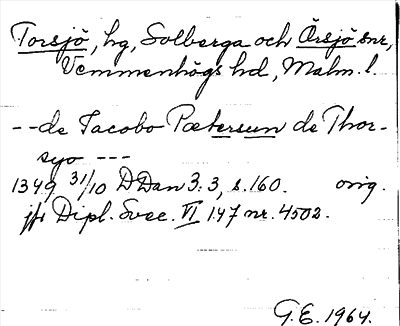 Torsjö, hg, Solberga och Örsjö snr,
Vemmenhögs hd, Malm. l.
-- de Jacobo Pætersun de Thor-
syo ---
1349 31/10 DDan 3:3, s. 160. orig.
jfr Dipl. Svec. VI 147 nr. 4502.
G.E. 1964.